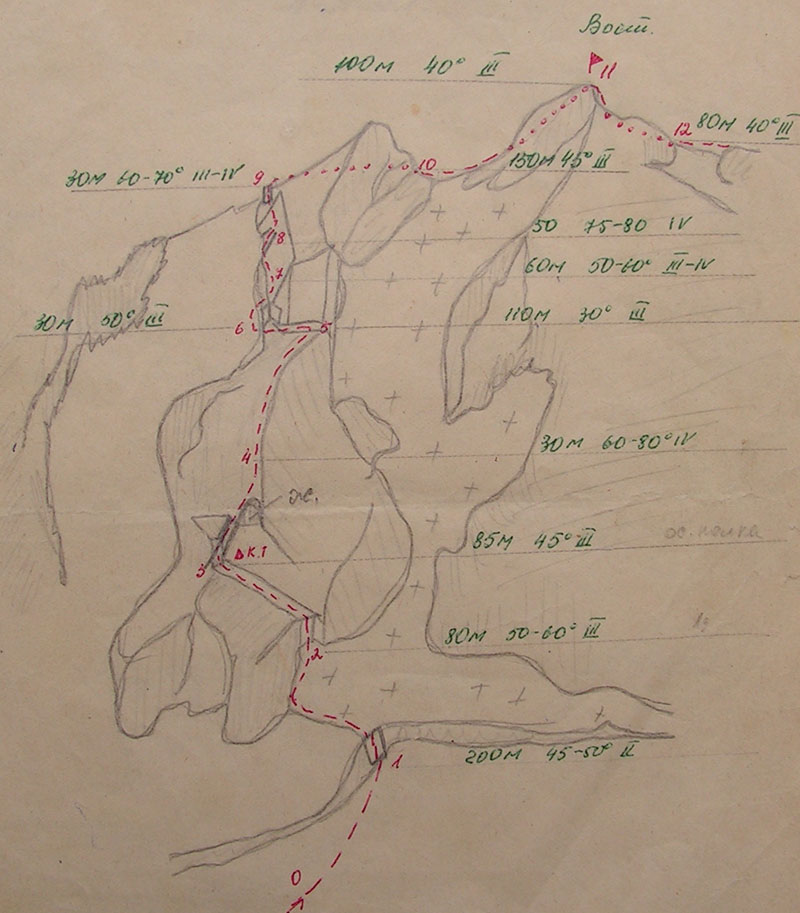 Вост.
11
100м 40° III
12
80м 40° III
30м 60-70° III-IV
9
10
130м 45° III
8
50 75-80 IV
7
60м 50-60° III-IV
30м 50° III
6
5
110м 30° III
4
30м 60-80° IV
ж.
3
▵К.Т
85м 45° III
2
80м 50-60° III
1
200м 45-50° II
0